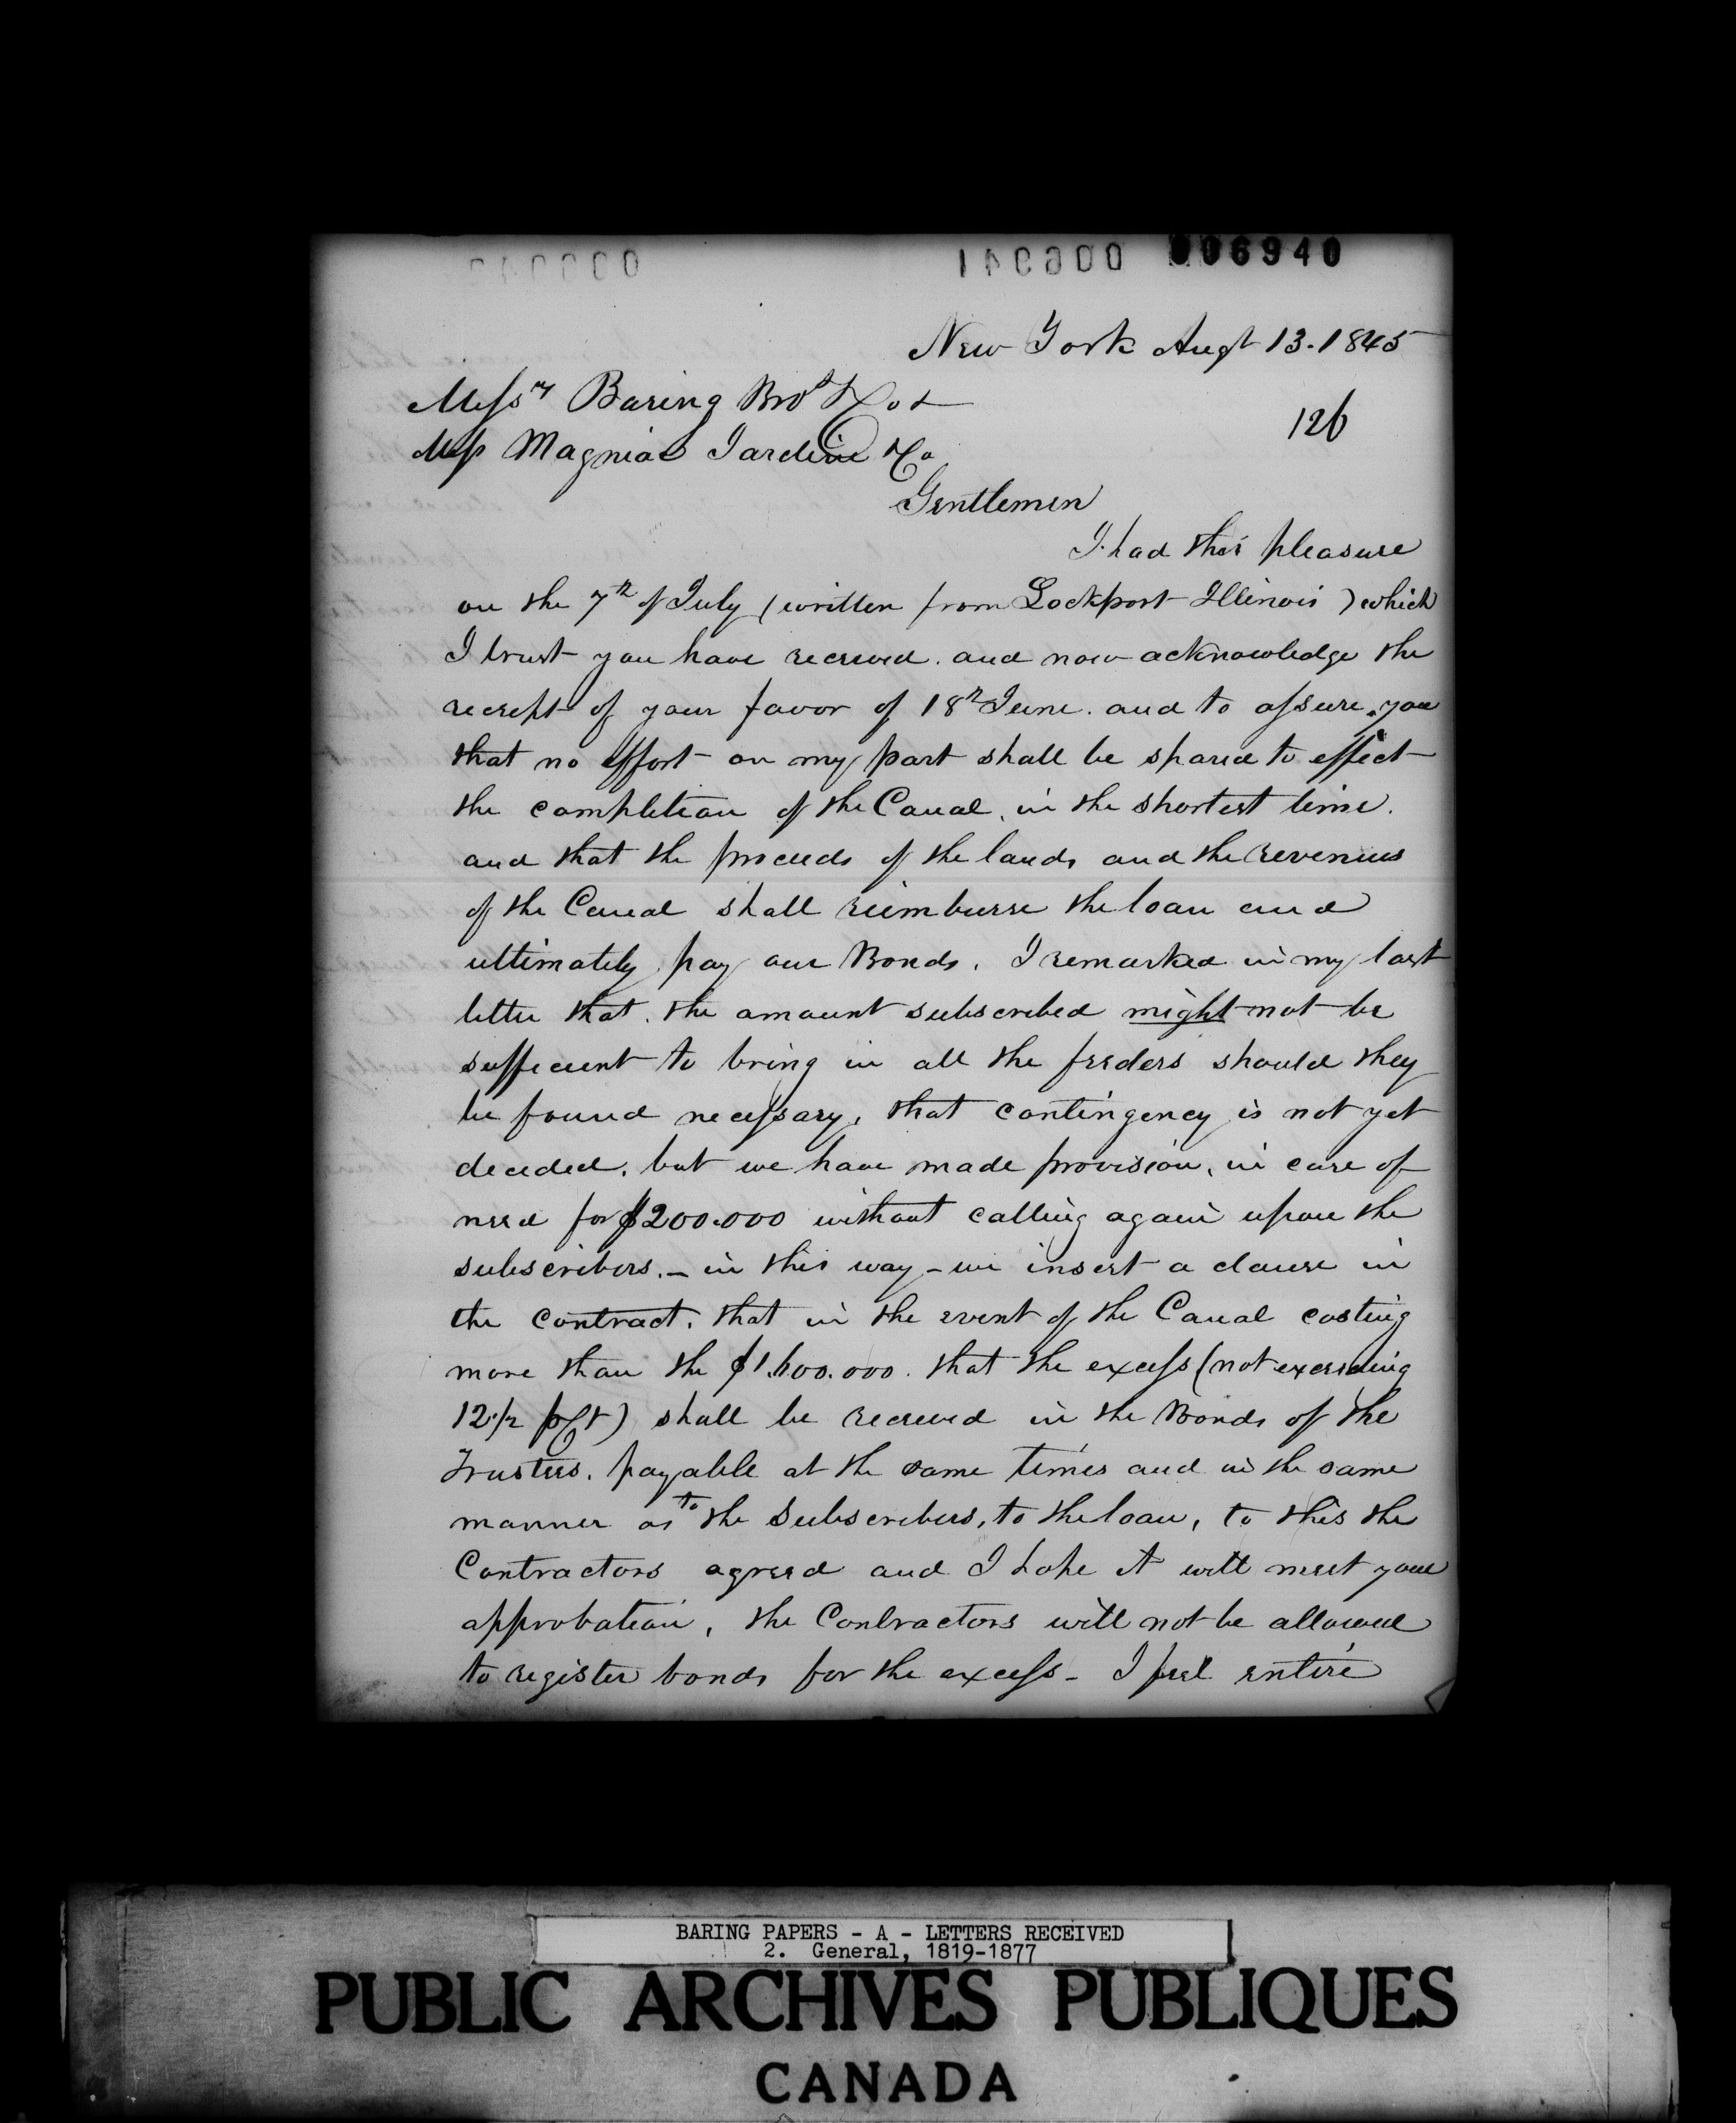 006940
New York Augt 13. 1845
126
Messrs Baring Bros & Co &
Mess Magniac Jardine & Co
Gentlemen
I had this pleasure
on the 7th of July (written from Lockport Illinois) which
I trust you have received. and now acknowledge the
receipt of your favor of 18th June. and to assure you
that no effort on my part shall be spared to effect
the completion of the Canal, in the shortest time.
and that the proceeds of the lands and the revenues
of the Canal shall reimburse the loan and
ultimately pay our Bonds. I remarked in my last
letter that. the amount subscribed might not be
sufficient to bring in all the feeders should they
be found necessary, that contingency is not yet
decided. but we have made provision, in case of
need for $200.000 without calling again upon the
subscribers. – in this way – we insert a clause in
the contract. that in the event of the Canal costing
more than the $1.600.000. that the excess (not exceeding
12 1/2 p Ct) shall be received in the Bonds of the
Trustees. payable at the same times and in the same
manner as to the Subscribers, to the loan, to this the
Contractors agreed and I hope it will meet your
approbation, the Contractors will not be allowed
to register bonds for the excess – I feel entire
BARING PAPERS - A - LETTERS RECEIVED
2. General, 1819-1877
PUBLIC ARCHIVES PUBLIQUES
CANADA